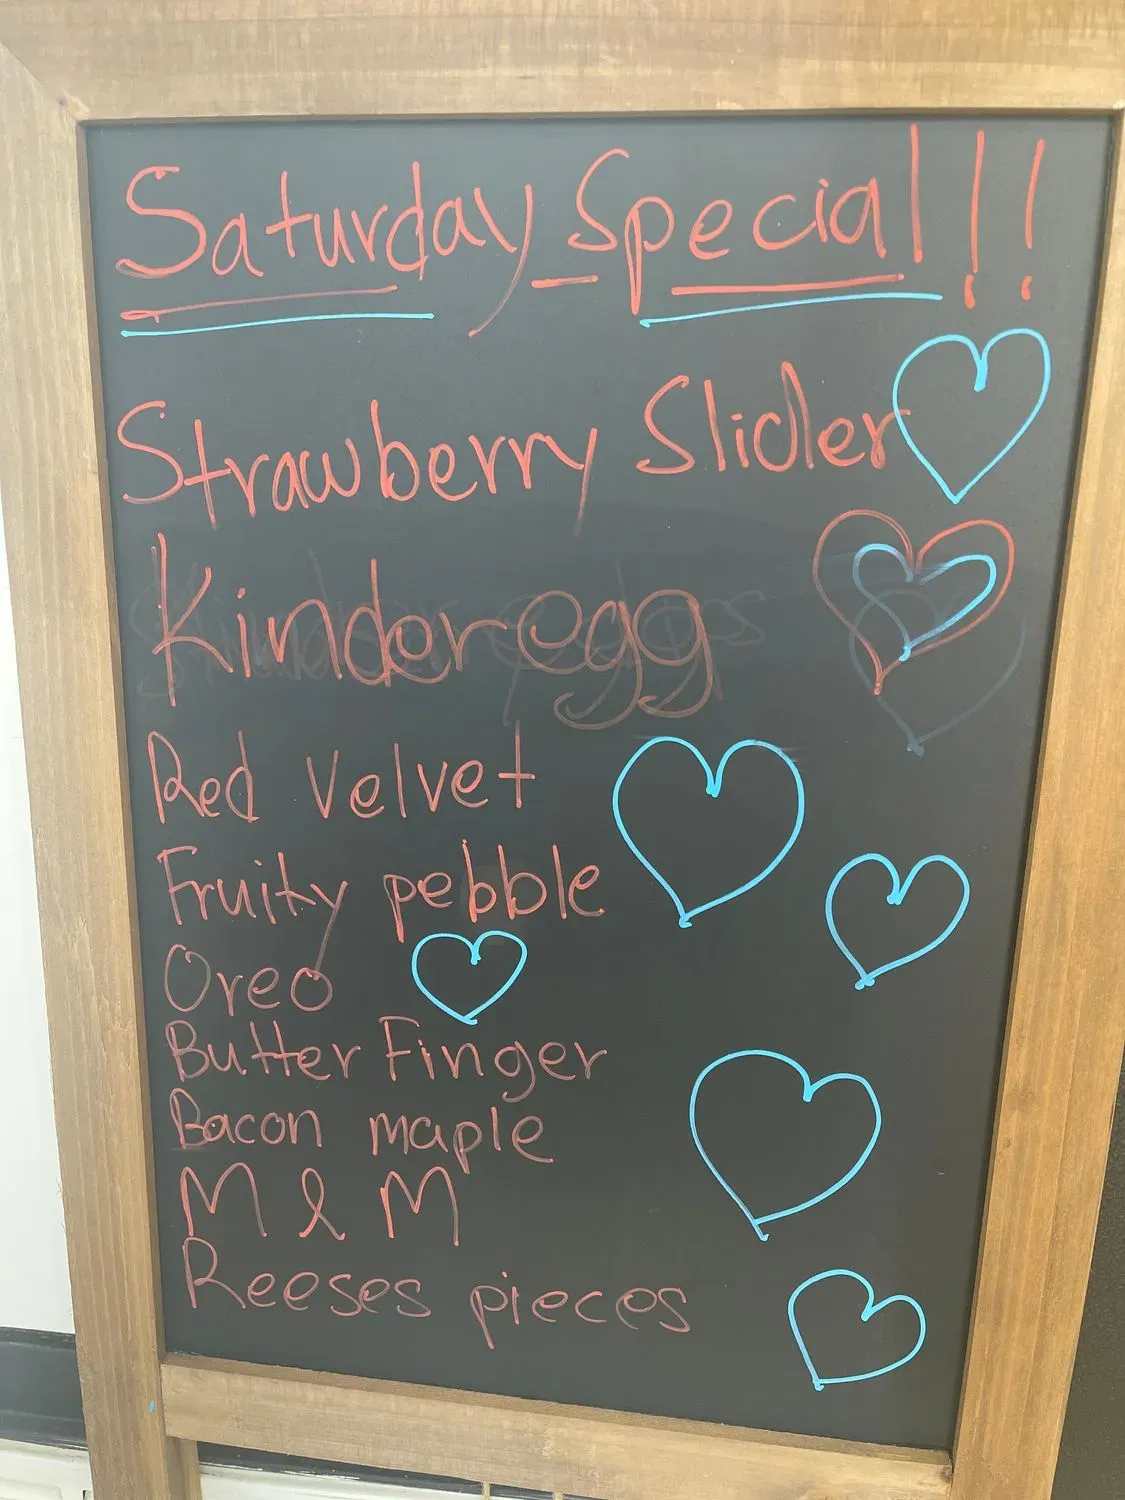 Saturday Special!!!
Strawberry Slider
Kinder egg
Red Velvet
Fruity pebble
Oreo
Butter Finger
Bacon maple
M & M
Reeses pieces